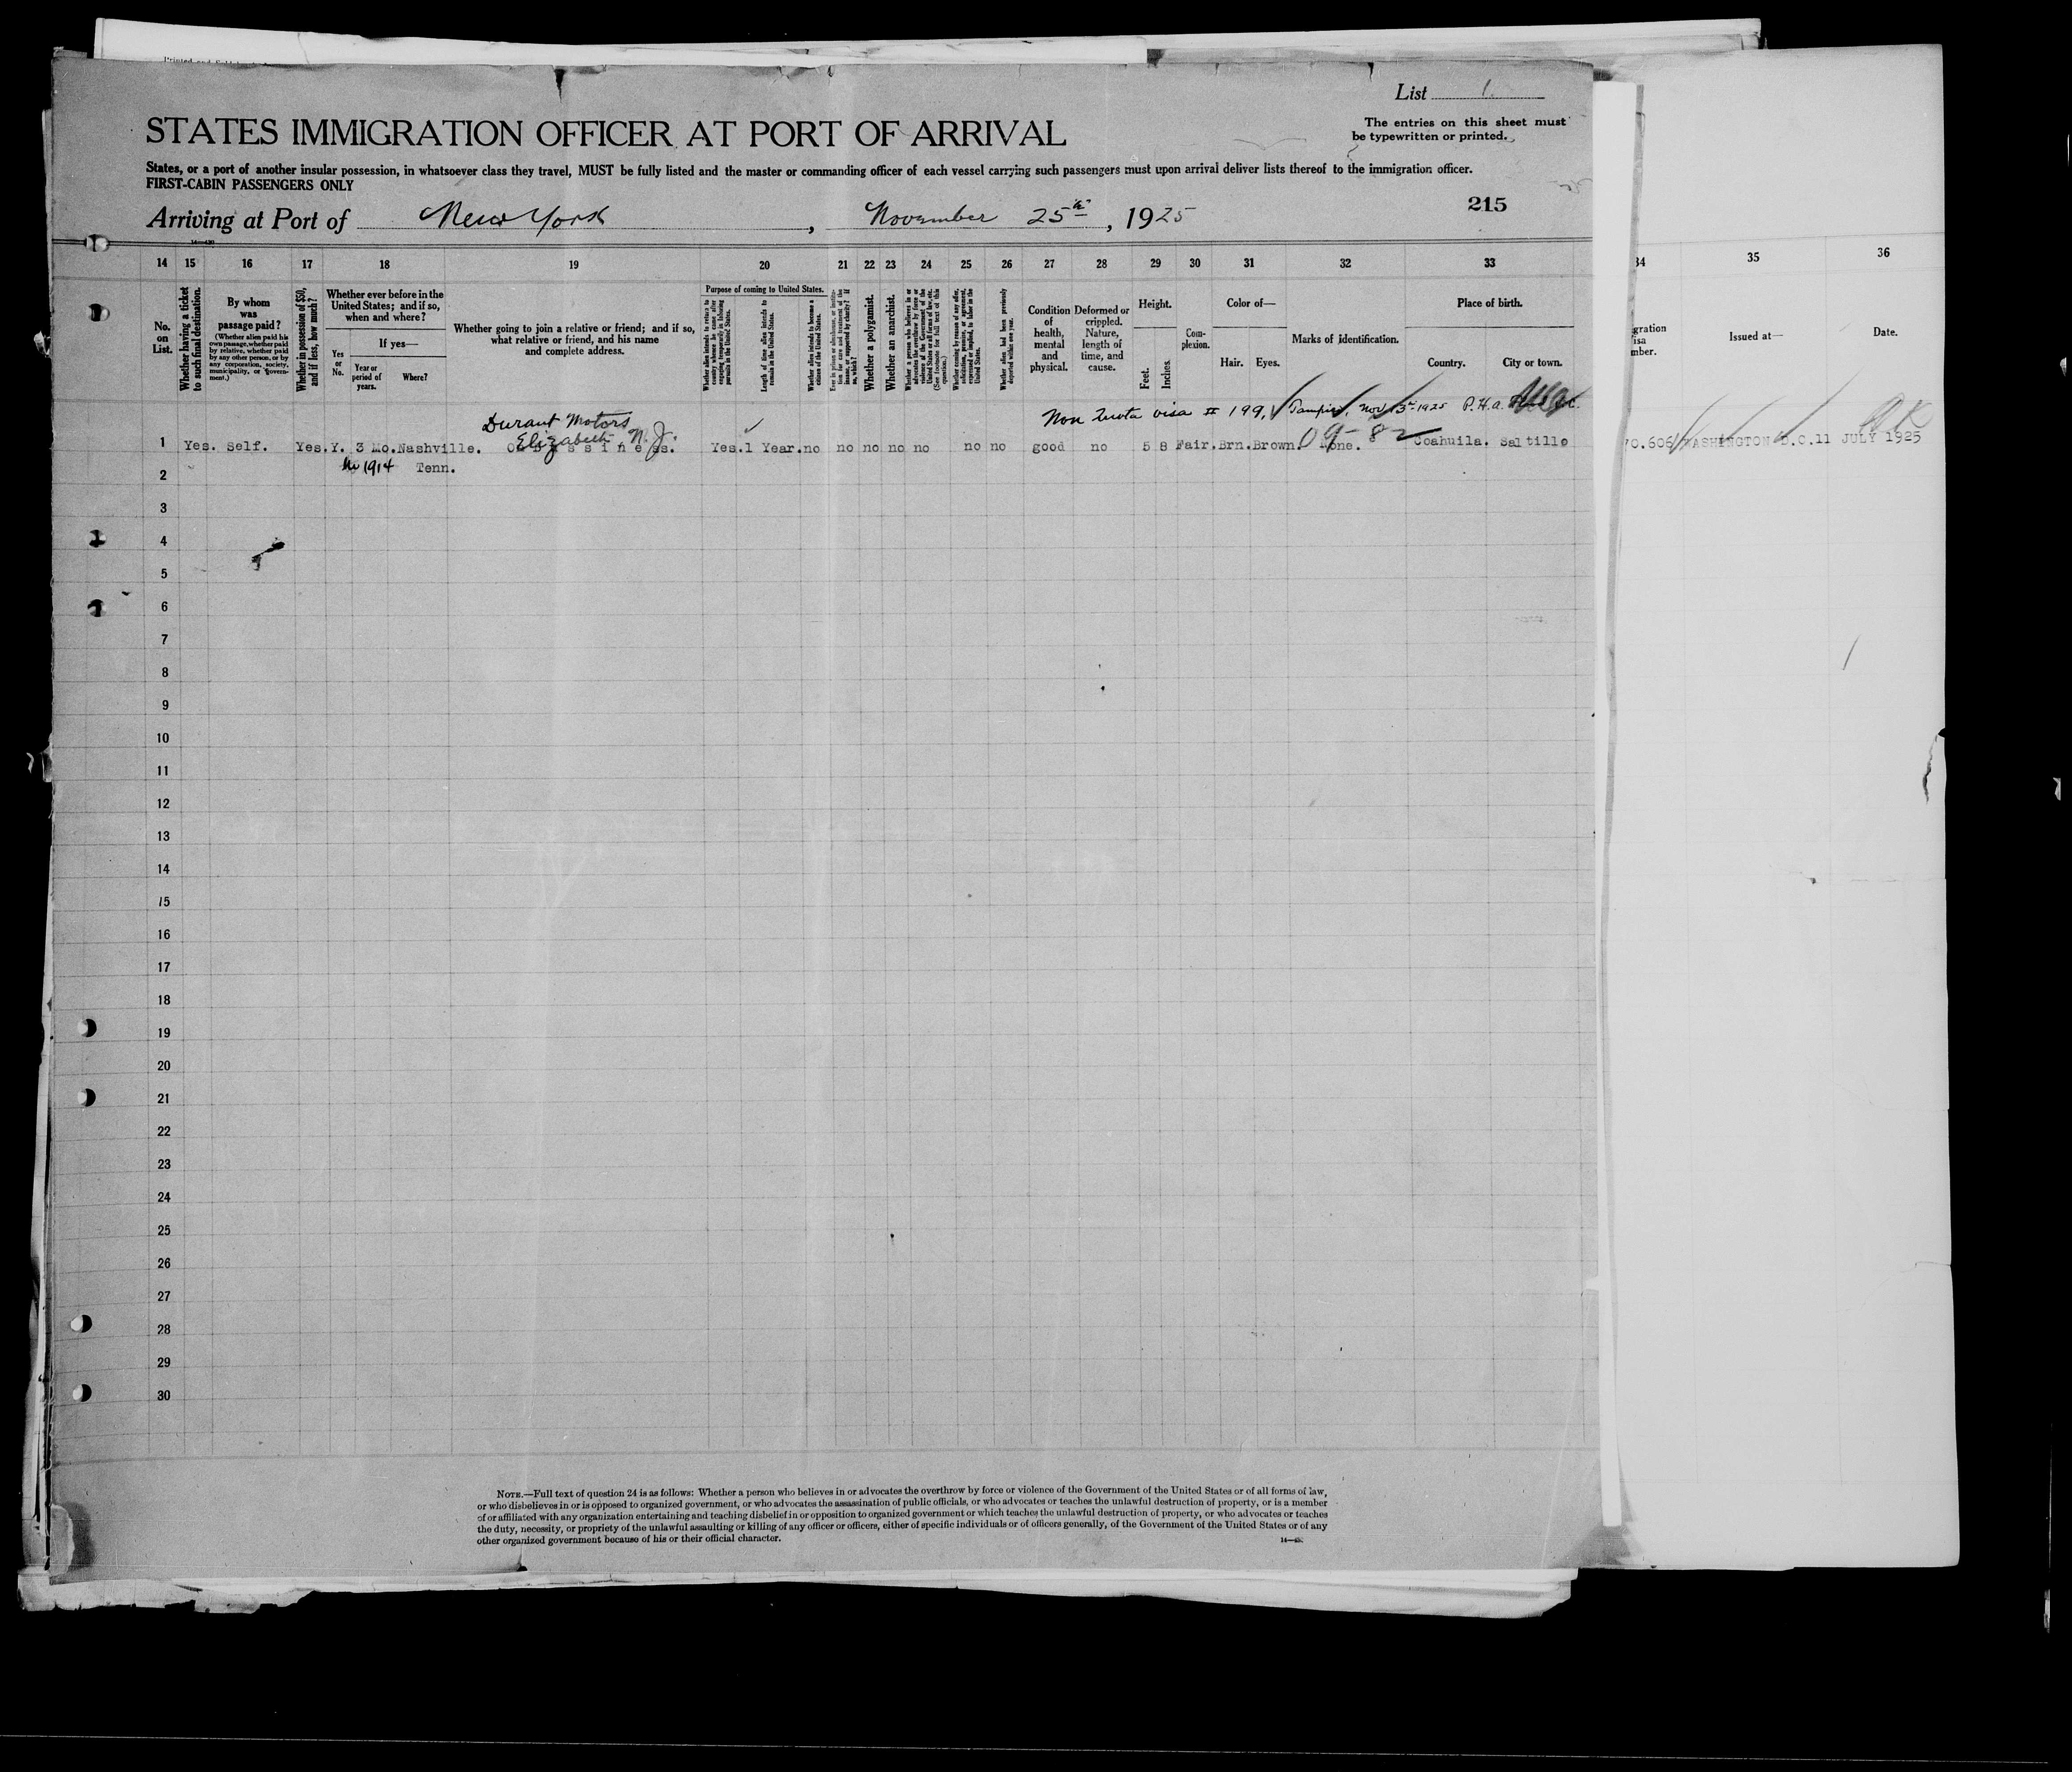 List 1.
The entries on this sheet must
be typewritten or printed.
STATES IMMIGRATION OFFICER AT PORT OF ARRIVAL
States, or a port of another insular possession, in whatsoever class they travel, MUST be fully listed and the master or commanding officer of each vessel carrying such passengers must upon arrival deliver lists thereof to the immigration officer.
FIRST-CABIN PASSENGERS ONLY
215
Arriving at Port of New York, November 25th, 1925
14 15 16 17 18 19 20 21 22 23 24 25 26 27 28 29 30 31 32 33 34 35 36
No. on List.
Whether having a ticket to such final destination.
By whom was passage paid?
(Whether alien paid his own passage, whether paid by relative, whether paid by any other person, or by any corporation, society, municipality, or government.)
Whether in possession of $50, and if less, how much?
Whether ever before in the United States; and if so, when and where?
If yes—
Yes or No.
Year or period of years.
Where?
Whether going to join a relative or friend; and if so, what relative or friend, and his name and complete address.
Purpose of coming to United States.
Whether alien intends to return to country whence he came after engaging temporarily in laboring pursuits in the United States.
Length of time alien intends to remain in the United States.
Whether alien intends to become a citizen of the United States.
Ever in prison or almshouse, or institution for care and treatment of the insane, or supported by charity? If so, which?
Whether a polygamist.
Whether an anarchist.
Whether a person who believes in or advocates the overthrow by force or violence of the Government of the United States or all forms of law, etc. (See footnote for full text of this question.)
Whether coming by reason of any offer, solicitation, promise, or agreement, expressed or implied, to labor in the United States.
Whether alien had been previously deported within one year.
Condition of health, mental and physical.
Deformed or crippled. Nature, length of time, and cause.
Height.
Feet. Inches.
Complexion.
Color of—
Hair. Eyes.
Marks of identification.
Place of birth.
Country. City or town.
gration
isa
mber.
Issued at—
Date.
Non Quota visa # 199, Tampico, Nov 13th 1925 P.H.a.
Durant Motors
Elizabeth, N. J.
09-82
1 Yes. Self. Yes. Y. 3 Mo. Nashville. Yes. 1 Year. no no no no no no no good no 5 8 Fair. Brn. Brown. None. Coahuila. Saltillo
70.606 WASHINGTON D.C. 11 JULY 1925
1914 Tenn.
2
3
4
5
6
7
8
9
10
11
12
13
14
15
16
17
18
19
20
21
22
23
24
25
26
27
28
29
30
NOTE.—Full text of question 24 is as follows: Whether a person who believes in or advocates the overthrow by force or violence of the Government of the United States or of all forms of law,
or who disbelieves in or is opposed to organized government, or who advocates the assassination of public officials, or who advocates or teaches the unlawful destruction of property, or is a member
of or affiliated with any organization entertaining and teaching disbelief in or opposition to organized government or which teaches the unlawful destruction of property, or who advocates or teaches
the duty, necessity, or propriety of the unlawful assaulting or killing of any officer or officers, either of specific individuals or of officers generally, of the Government of the United States or of any
other organized government because of his or their official character.